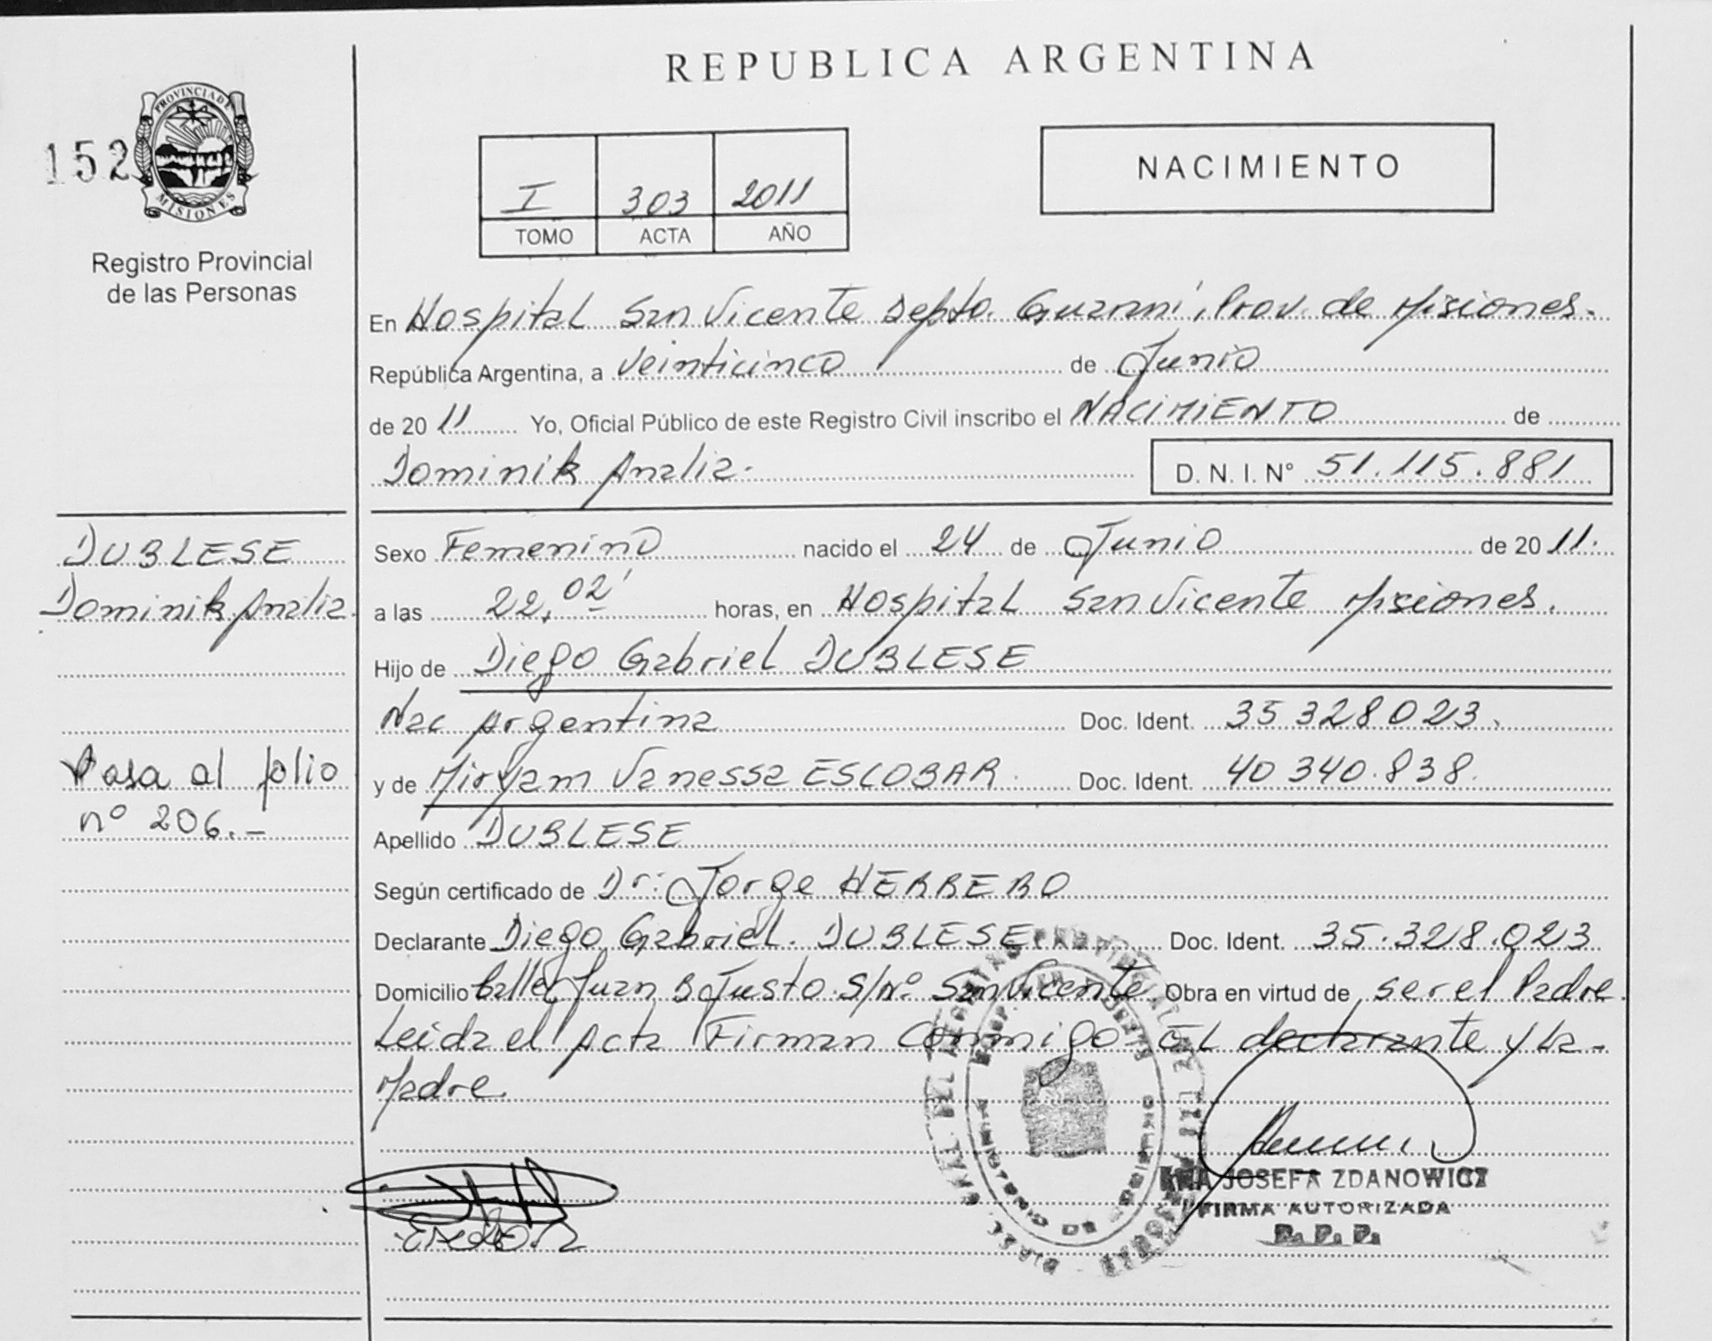 REPUBLICA ARGENTINA
152
PROVINCIA DE
MISIONES
Registro Provincial
de las Personas
I 303 2011
TOMO ACTA AÑO
NACIMIENTO
En Hospital San Vicente Depto. Guaraní, Prov. de Misiones.
República Argentina, a Veinticinco de Junio
de 2011 Yo, Oficial Público de este Registro Civil inscribo el NACIMIENTO de
Dominik Analia. D. N. I. N° 51.115.881
DUBLESE
Dominik Analia.
Pasa al folio
nº 206.-
Sexo Femenino nacido el 24 de Junio de 2011.
a las 22,02' horas, en Hospital San Vicente Misiones.
Hijo de Diego Gabriel DUBLESE
Nac Argentina Doc. Ident. 35 328 023.
y de Miryam Vanessa ESCOBAR. Doc. Ident. 40 340.838.
Apellido DUBLESE
Según certificado de Dr: Jorge HERRERO
Declarante Diego Gabriel. DUBLESE Doc. Ident. 35.328.023
Domicilio Calle Juan B Justo S/Nº San Vicente Obra en virtud de ser el Padre.
Leida el Acta Firman Conmigo EL declarante y La-
Madre.
JOSEFA ZDANOWICZ
FIRMA AUTORIZADA
R. P. P.